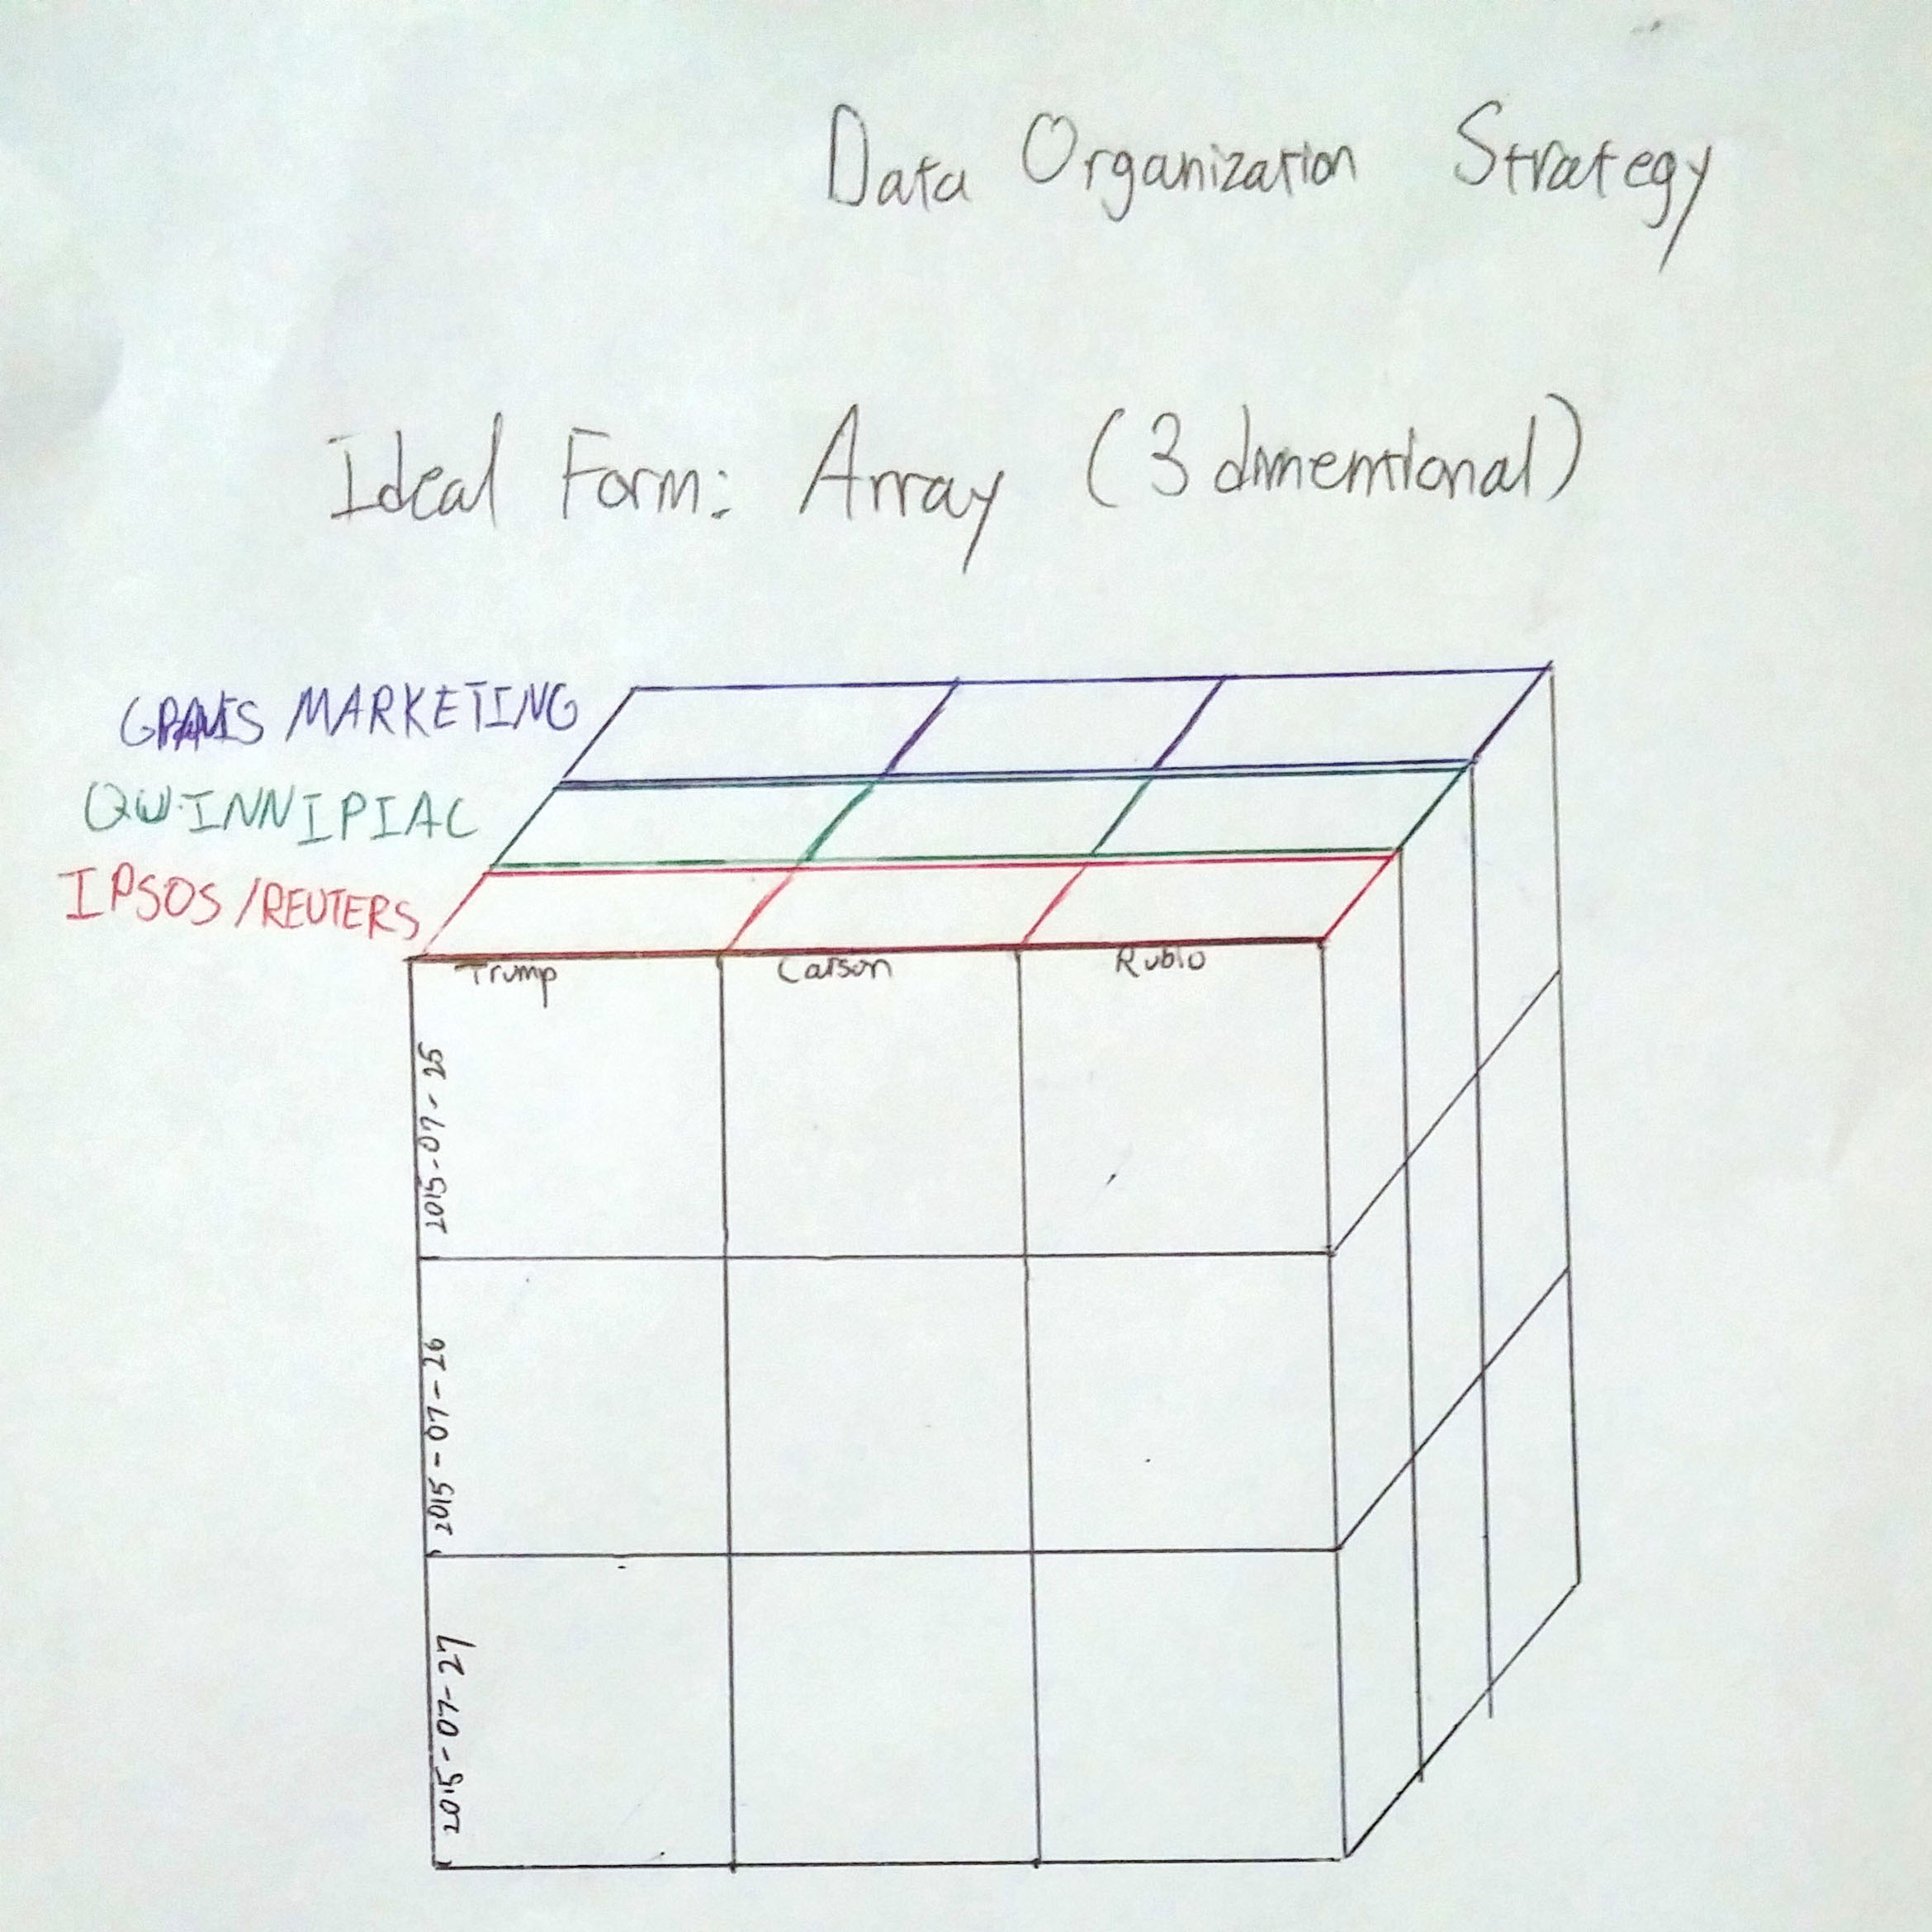 Data Organization Strategy
Ideal Form: Array (3 dimentional)
MARKETING
QUINNIPIAC
IPSOS/REUTERS
Trump Carson Rubio
2015-07-25
2015-07-26
2015-07-27